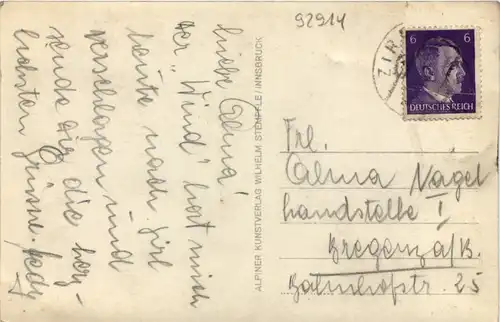 92914
Liebe Alma!
Der „Wind" hat mich
heute nach Zirl
verschlagen und
sende dir die herz-
lichsten Grüsse. Hedy
ALPINER KUNSTVERLAG WILHELM STEMPFLE / INNSBRUCK
ZIRL
6 6
DEUTSCHES REICH
Frl.
Alma Nagel
Handstelle I
Bregenz a/B.
Bahnhofstr. 25